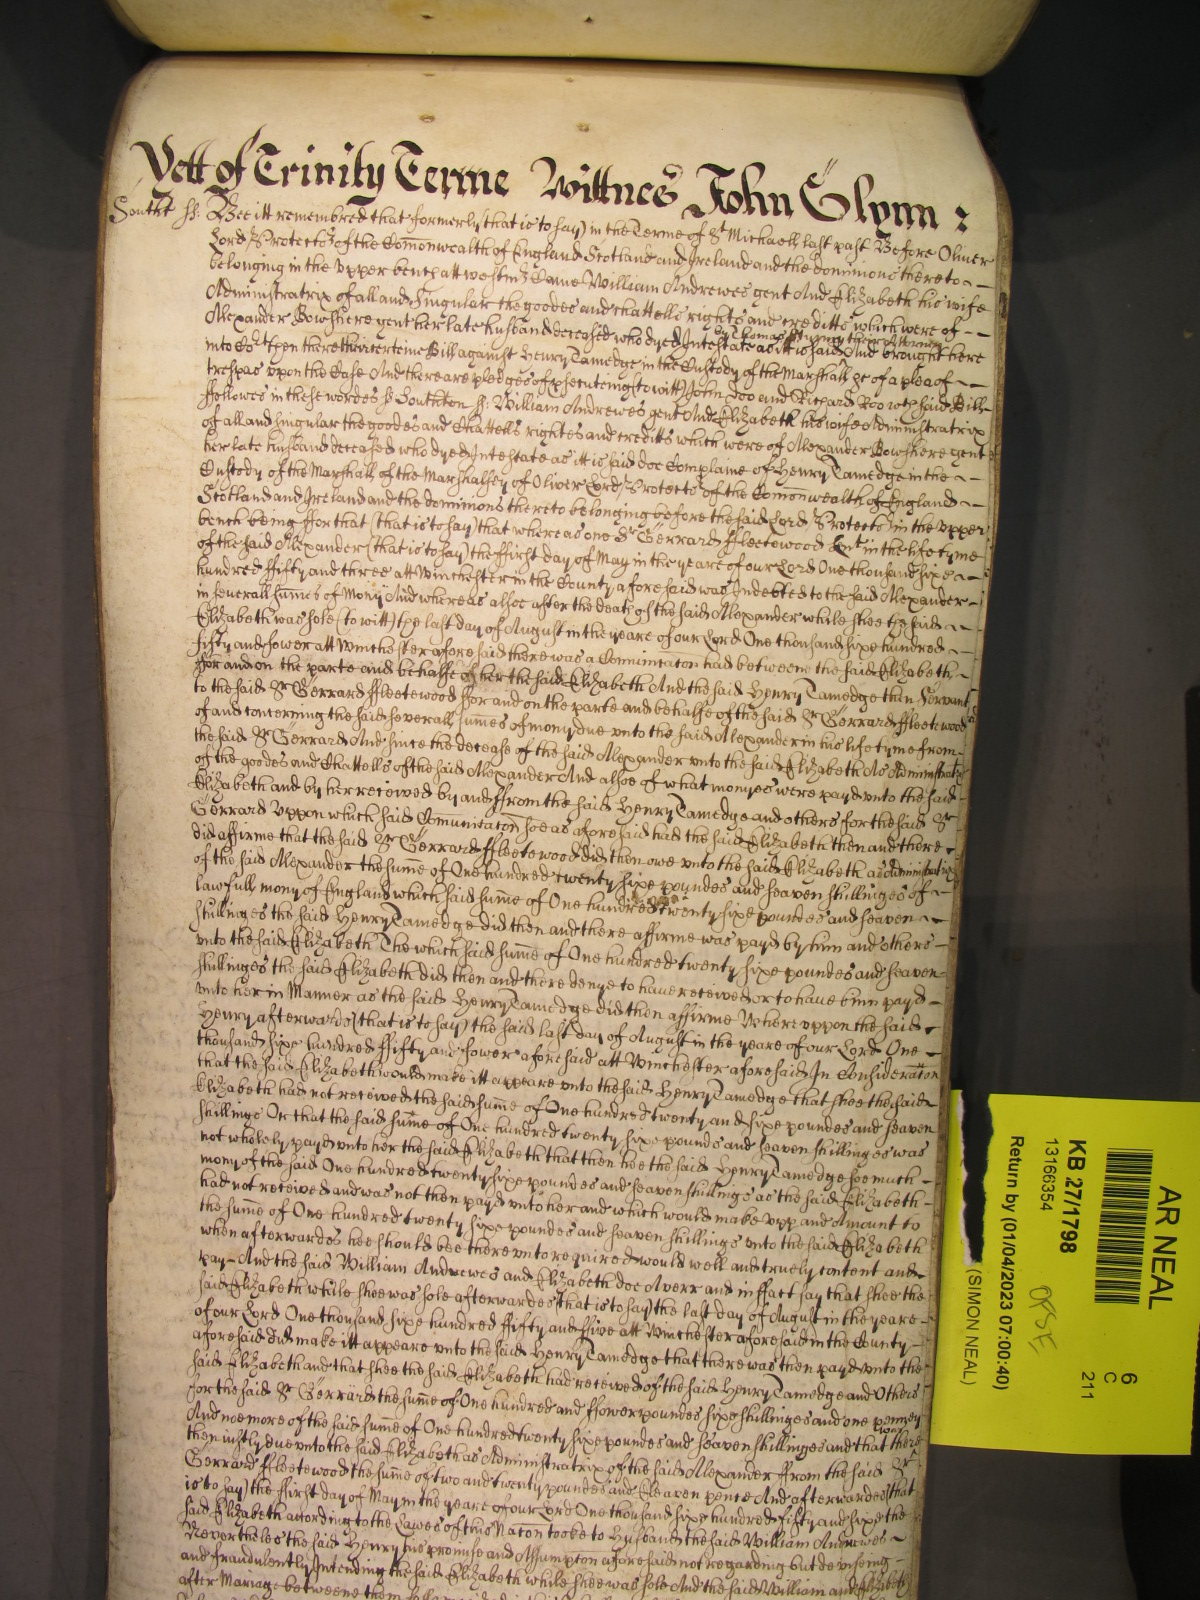 Yett of Trinity Terme Wittnes John Glynn :
Southt ss: Bee itt remembred that formerly (that is to say) in the Terme of St Michaell last past Before Oliver
Lord Protector of the Comonwealth of England Scotland and Ireland and the dominions thereto
belonging in the upper bench att westmr Came William Andrewes gent And Elizabeth his wife
Administratrix of all and Singular the goodes and chattells rights and creditts which were of
Alexander Bowshere gent her late husband deceased who dyed Intestate as itt is said by Thomas their Attorney And brought here
into Cort then there their certeine Bill against Henry Tamedge in the Custody of the Marshall &c of a plea of
trespas upon the Case And there are pledges of prosecuteing (to witt) John Doo and Richard Roo wch said Bill
ffollowes in these wordes ss Southton ss: William Andrewes gent And Elizabeth his wife Administratrix
of all and singular the goodes and Chattells rightes and creditts which were of Alexander Bowshere gent
her late husband deceased who dyed Intestate as itt is said doe Complaine of Henry Tamedge in the
Custody of the Marshall of the Marshalsey of Oliver Lord Protector of the Comonwealth of England
Scotland and Ireland and the dominions thereto belonging before the said Lord Protector in the upper
bench being ffor that (that is to say) that whereas one Sr Gerrard ffleetewood knt in the life tyme
of the said Alexander (that is to say) the ffirst day of May in the yeare of our Lord One thousand sixe
hundred ffifty and three att Winchester in the County aforesaid was Indebted to the said Alexander
in severall sumes of Mony And whereas alsoe after the death of the said Alexander while shee the said
Elizabeth was sole (to witt) the last day of August in the yeare of our Lord One thousand sixe hundred
fifty and fower att Winchester aforesaid there was a Comunicaton had betweene the said Elizabeth
ffor and on the parte and behalfe of her the said Elizabeth And the said Henry Tamedge then Servant
to the said Sr Gerrard ffleetewood ffor and on the parte and behalfe of the said Sr Gerrard ffleetewood
of and concerning the said severall sumes of mony due unto the said Alexander in his life tyme from
the said Sr Gerrard And since the decease of the said Alexander unto the said Elizabeth As Administratrix
of the goodes and Chattells of the said Alexander And alsoe of what monyes were payd unto the said
Elizabeth and by her received by and ffrom the said Henry Tamedge and others for the said Sr
Gerrard Uppon which said Comunicaton soe as aforesaid had the said Elizabeth then and there
did affirme that the said Sr Gerrard ffleetewood did then owe unto the said Elizabeth as Administratrix
of the said Alexander the sume of One hundred twenty sixe poundes and seaven shillinges of
lawfull mony of England which said sume of One hundred twenty sixe poundes and seaven
shillinges the said Henry Tamedge did then and there affirme was payd by him and others
unto the said Elizabeth The which said sume of One hundred twenty sixe poundes and seaven
shillinges the said Elizabeth did then and there denye to have received or to have binn payd
unto her in Manner as the said Henry Tamedge did then affirme Whereuppon the said
Henry afterwards (that is to say) the said last day of August in the yeare of our Lord One
thousand sixe hundred ffifty and fower aforesaid att Winchester aforesaid In Consideraton
that the said Elizabeth would make itt appeare unto the said Henry Tamedge that shee the said
Elizabeth had not received the said sume of One hundred twenty and sixe poundes and seaven
shillings Or that the said sume of One hundred twenty sixe poundes and seaven shillinges was
not wholely payd unto her the said Elizabeth that then hee the said Henry Tamedge soe much
mony of the said One hundred twenty sixe poundes and seaven shillings as the said Elizabeth
had not received and was not then payd unto her and which would make upp and Amount to
the sume of One hundred twenty sixe poundes and seaven shillings unto the said Elizabeth
when afterwardes hee should bee thereunto required would well and truely content and
pay And the said William Andrewes and Elizabeth doe Averr and in ffact say that shee the
said Elizabeth while shee was sole afterwardes (that is to say) the last day of August in the yeare
of our Lord One thousand sixe hundred ffifty and ffive att Winchester aforesaid in the County
aforesaid did make itt appeare unto the said Henry Tamedge that there was then payd unto the
said Elizabeth and that shee the said Elizabeth had received of the said Henry Tamedge and Others
for the said Sr Gerrard the sume of One hundred and ffower poundes sixe shillinges and one penney
And noe more of the said sume of One hundred twenty sixe poundes and seaven shillinges and that there was
then iustly due unto the said Elizabeth as Administratrix of the said Alexander ffrom the said Sr
Gerrard ffleetewood the sume of two and twenty poundes and Eleaven pence And afterwardes (that
is to say) the ffirst day of May in the yeare of our Lord One thousand sixe hundred fifty and sixe the
said Elizabeth according to the Lawes of this Naton tooke to Husband the said William Andrewes
Neverthelesse the said Henry his promise and Assumpton aforesaid not regarding but deviseing
and fraudulently Intending the said Elizabeth while shee was sole And the said William and Elizabeth
after Mariage betweene them
AR NEAL
6
C
211
KB 27/1798
13166354
Return by (01/04/2023 07:00:40)
(SIMON NEAL)